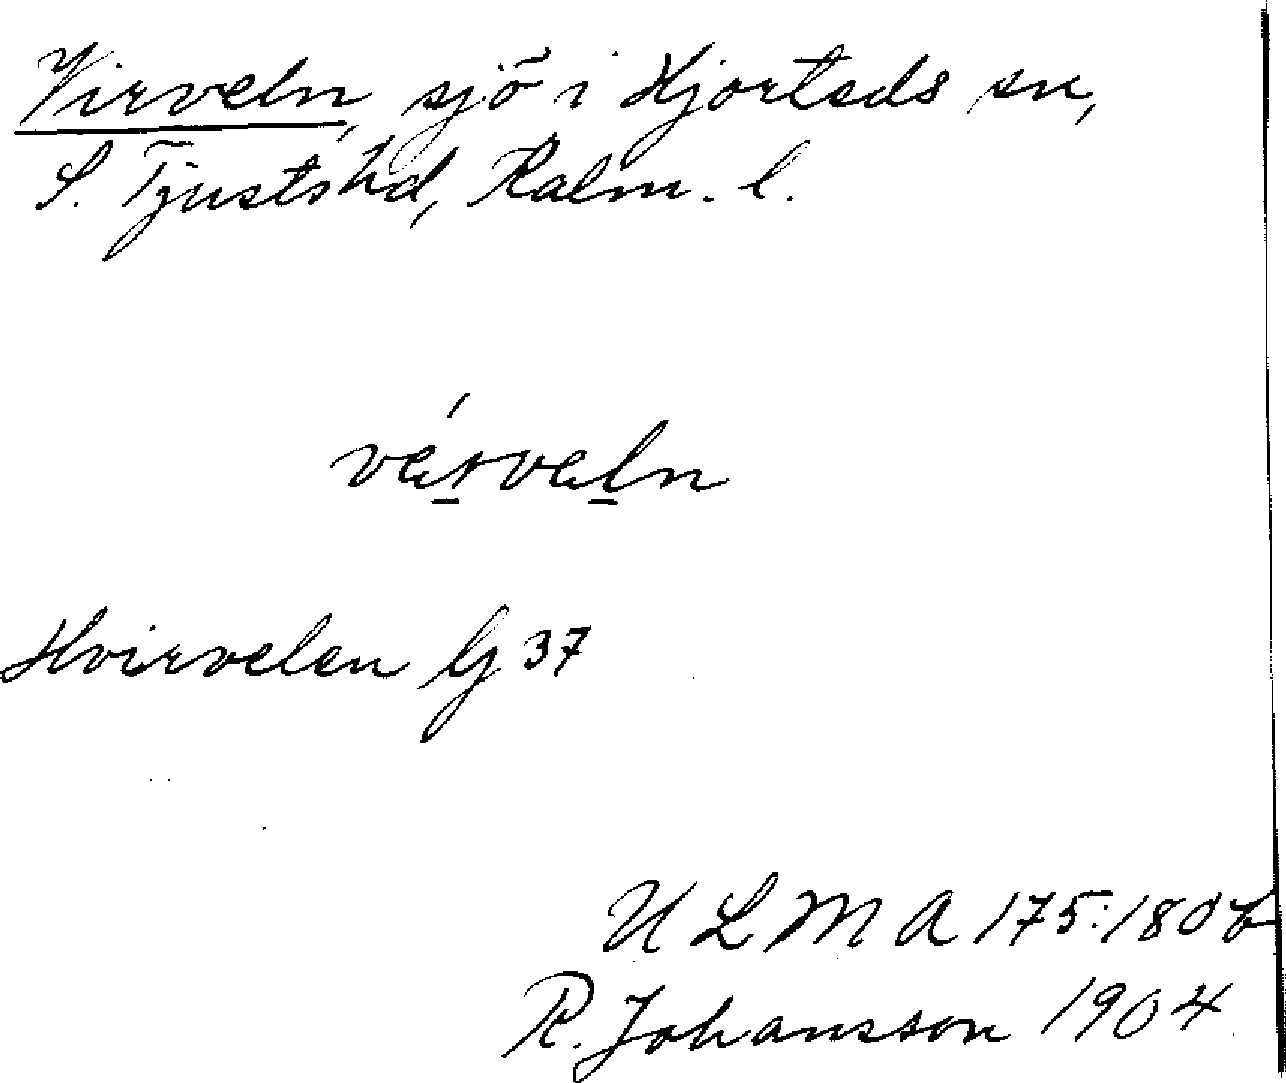 Virveln, sjö i Hjorteds sn,
S. Tjusts hd, Kalm. l.
vérveln
Hvirvelen Gj 37
ULMA 175:180 b
R. Johansson 1904